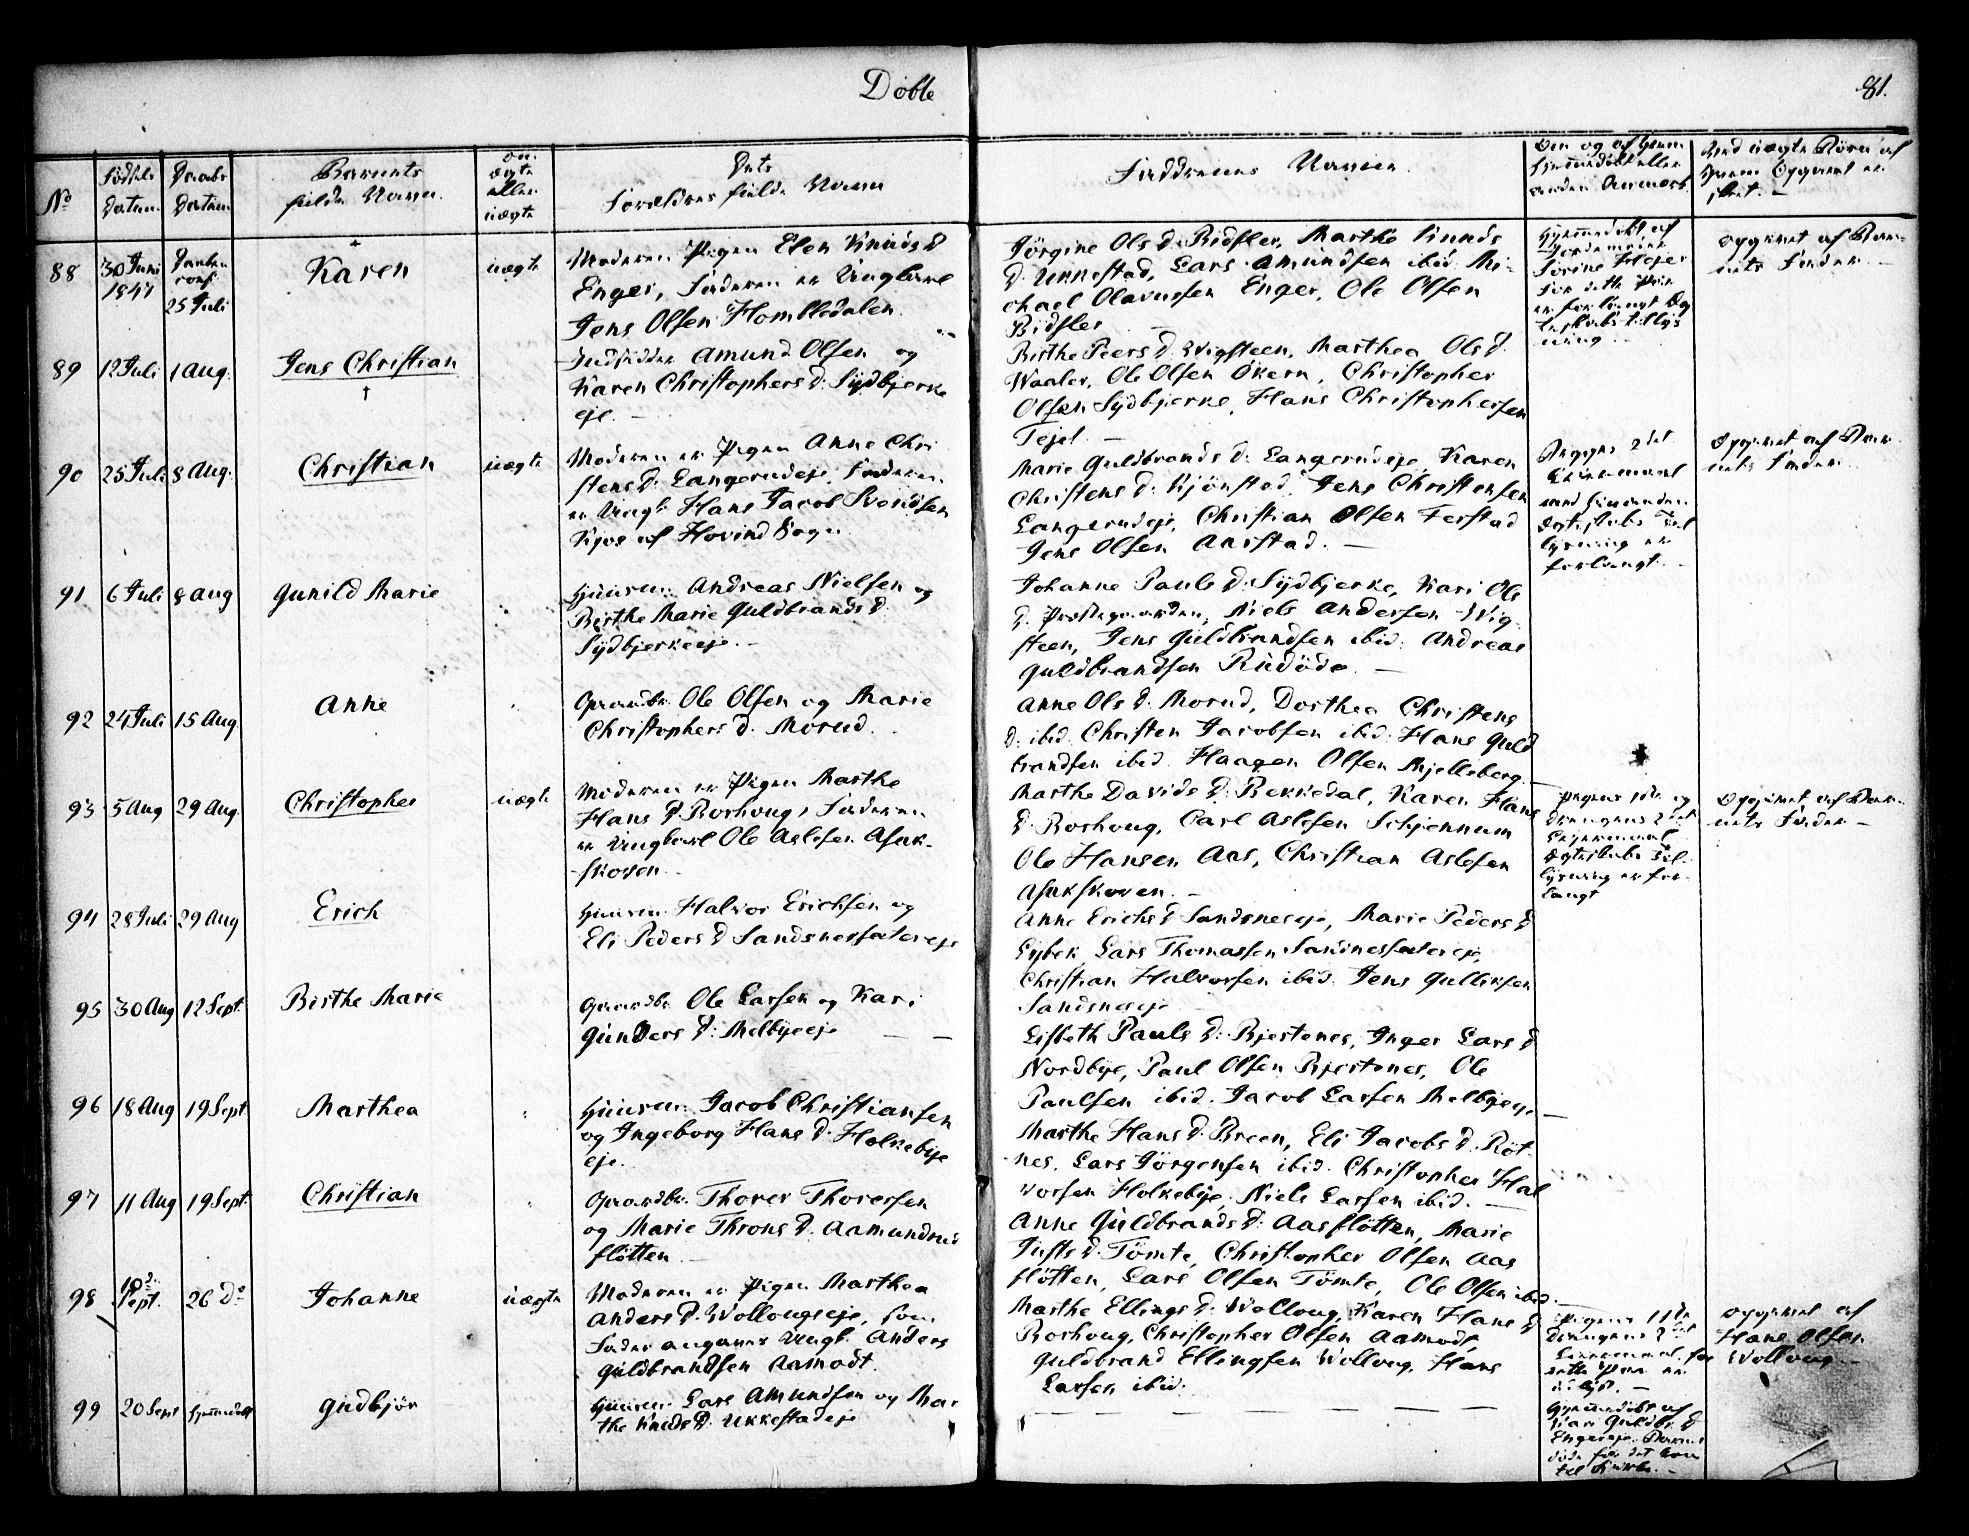 Døbte
81.
No
Fødsels
Datum
Daabs
Datum
Barnets
fulde Navn.
om
ægte
eller
uægte
Dets
Forældres fulde Navn
Faddrenes Navne.
Om og af hvem
hjemmedøbt eller
anden Anmærk
Ved uægte Børn af
hvem Opgivet er
skeet. —
88
30 Juni
1847
25 Juli
Karen
uægte
Moderen Pigen Elen Knuds D
Enger, Faderen er Ungkarl
Jens Olsen Hombledalen.
Jörgine Ols D. Bidsler, Marthe Knuds
D. Ukkestad, Lars Amundsen ibid. Mi-
chael Olavussen Enger, Ole Olsen
Bidsler
Hjemmedøbt af
Jordemoder
opgivet af Bar-
nets Fader. —
89
12 Juli
1 Aug.
Jens Christian
†
Indsidder Amund Olsen og
Karen Christophers D: Sydbjerke
eje. —
Birthe Peers D. Wigsteen, Marthea Ols D.
Waaler, Ole Olsen Økern, Christopher
Olsen Sydbjerke, Hans Christophersen
Tejel. —
90
25 Juli
8 Aug.
Christian
uægte
Moderen er Pigen Anne Chri
stens D: Langerudeje, Faderen
er Ungk. Hans Jacob
Kjos af Hovind Sogn
Marie Guldbrands D: Langerudeje, Karen
Christens D: Kjönstad, Jens Christensen
Langerudeje, Christian Olsen Ferstad
Jens Olsen Aarstad. —
Pigens 2det
Leiermaal
forlangt. —
Opgivet af Bar-
nets Fader.
91
6 Juli
8 Aug
Gunild Marie
Huusm: Andreas Nielsen og
Birthe Marie Guldbrands D.
Sydbjerkeeje. —
Johanne Pauls D: Sydbjerke, Kari Ols
D. Prestegaarden, Niels Andersen Wig-
steen, Jens Guldbrandsen ibid. Andreas
Guldbrandsen Rudöde. —
92
24 Juli
15 Aug
Anne
Gaardbr. Ole Olsen og Marie
Christophers D. Morud.
Anne Ols D. Morud, Dorthea Christens
D: ibid. Christen Jacobsen ibid: Hans Guld
brandsen ibid. Haagen Olsen Mjelleberg —
93
5 Aug
29 Aug
Christopher
uægte
Moderen er Pigen Marthe
Hans D. Borhoug, Faderen
er Ungkarl Ole Aslesen Asak-
skoven. —
Marthe Davids D: Bekkedal, Karen Hans
D: Borhoug, Carl Aslesen Schjennum
Ole Hansen Aas, Christian Aslesen
Asakskoven. —
Pigens 1ste og
Drengens 2det
Leiermaal
Ægteskabs Til-
lysning er for-
langt
Opgivet af Bar-
nets Fader —
94
28 Juli
29 Aug
Erich
Huusm: Halvor Erichsen og
Eli Peders D Sandsnessætereje
Anne Erichs D Sandsneseje, Marie Peders D
Lybek, Lars Thomassen Sandnessætereje,
Christian Halvorsen ibid. Jens Gulliksen
Sandsneseje
95
30 Aug
12 Sept.
Birthe Marie
Gaardbr. Ole Larsen og Kari
Gunders D: Melbyeeje — —
Lisbeth Pauls D: Bjertenes, Inger Lars D
Nordbye, Paul Olsen Bjertenes, Ole
Paulsen ibid. Jacob Larsen Melbyeeje —
96
18 Aug
19 Sept.
Marthea
Huusm: Jacob Christiansen
og Ingeborg Hans D. Holkebye
eje.
Marthe Hans D. Breen, Eli Jacobs D. Röt-
nes, Lars Jörgensen ibid. Christopher Hal
vorsen Holkebye, Niels Larsen ibid. —
97
11 Aug
19 Sept.
Christian
Gaardbr. Thorer Thorersen
og Marie Throns D. Aamundrud
slötten —
Anne Guldbrands D: Aasslötten, Marie
Justs D: Tömte, Christopher Olsen Aas
slötten, Lars Olsen Tömte, Ole Olsen ibid. —
98
Sept.
26 Do
Johanne
uægte
Moderen er Pigen Marthea
Anders D. Wollougseje, som
Fader angaves Ungk. Anders
Guldbrandsen Aamodt.
Marthe Ellings D: Wolloug, Karen Hans D
Borhoug, Christopher Olsen Aamodt,
Guldbrand Ellingsen Wolloug, Hans
Larsen ibid.
Pigens 1ste
Drengens 2det
Leiermaal, for
dette Par er
Opgivet af
Hans Olsen
Wolloug —
99
20 Sept
Hjemmedøbt
Gudbjör
Huusm: Lars Amundsen og Mar-
the Knuds D. Ukkestadeje
Hjemmedøbt af
Kari Guldbr. D
Engereje. Barnet
døde før det kom
til Kirke. —